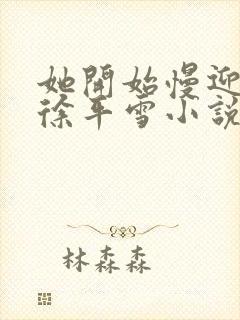 她開始慢迎
徐平雪小說
林森森